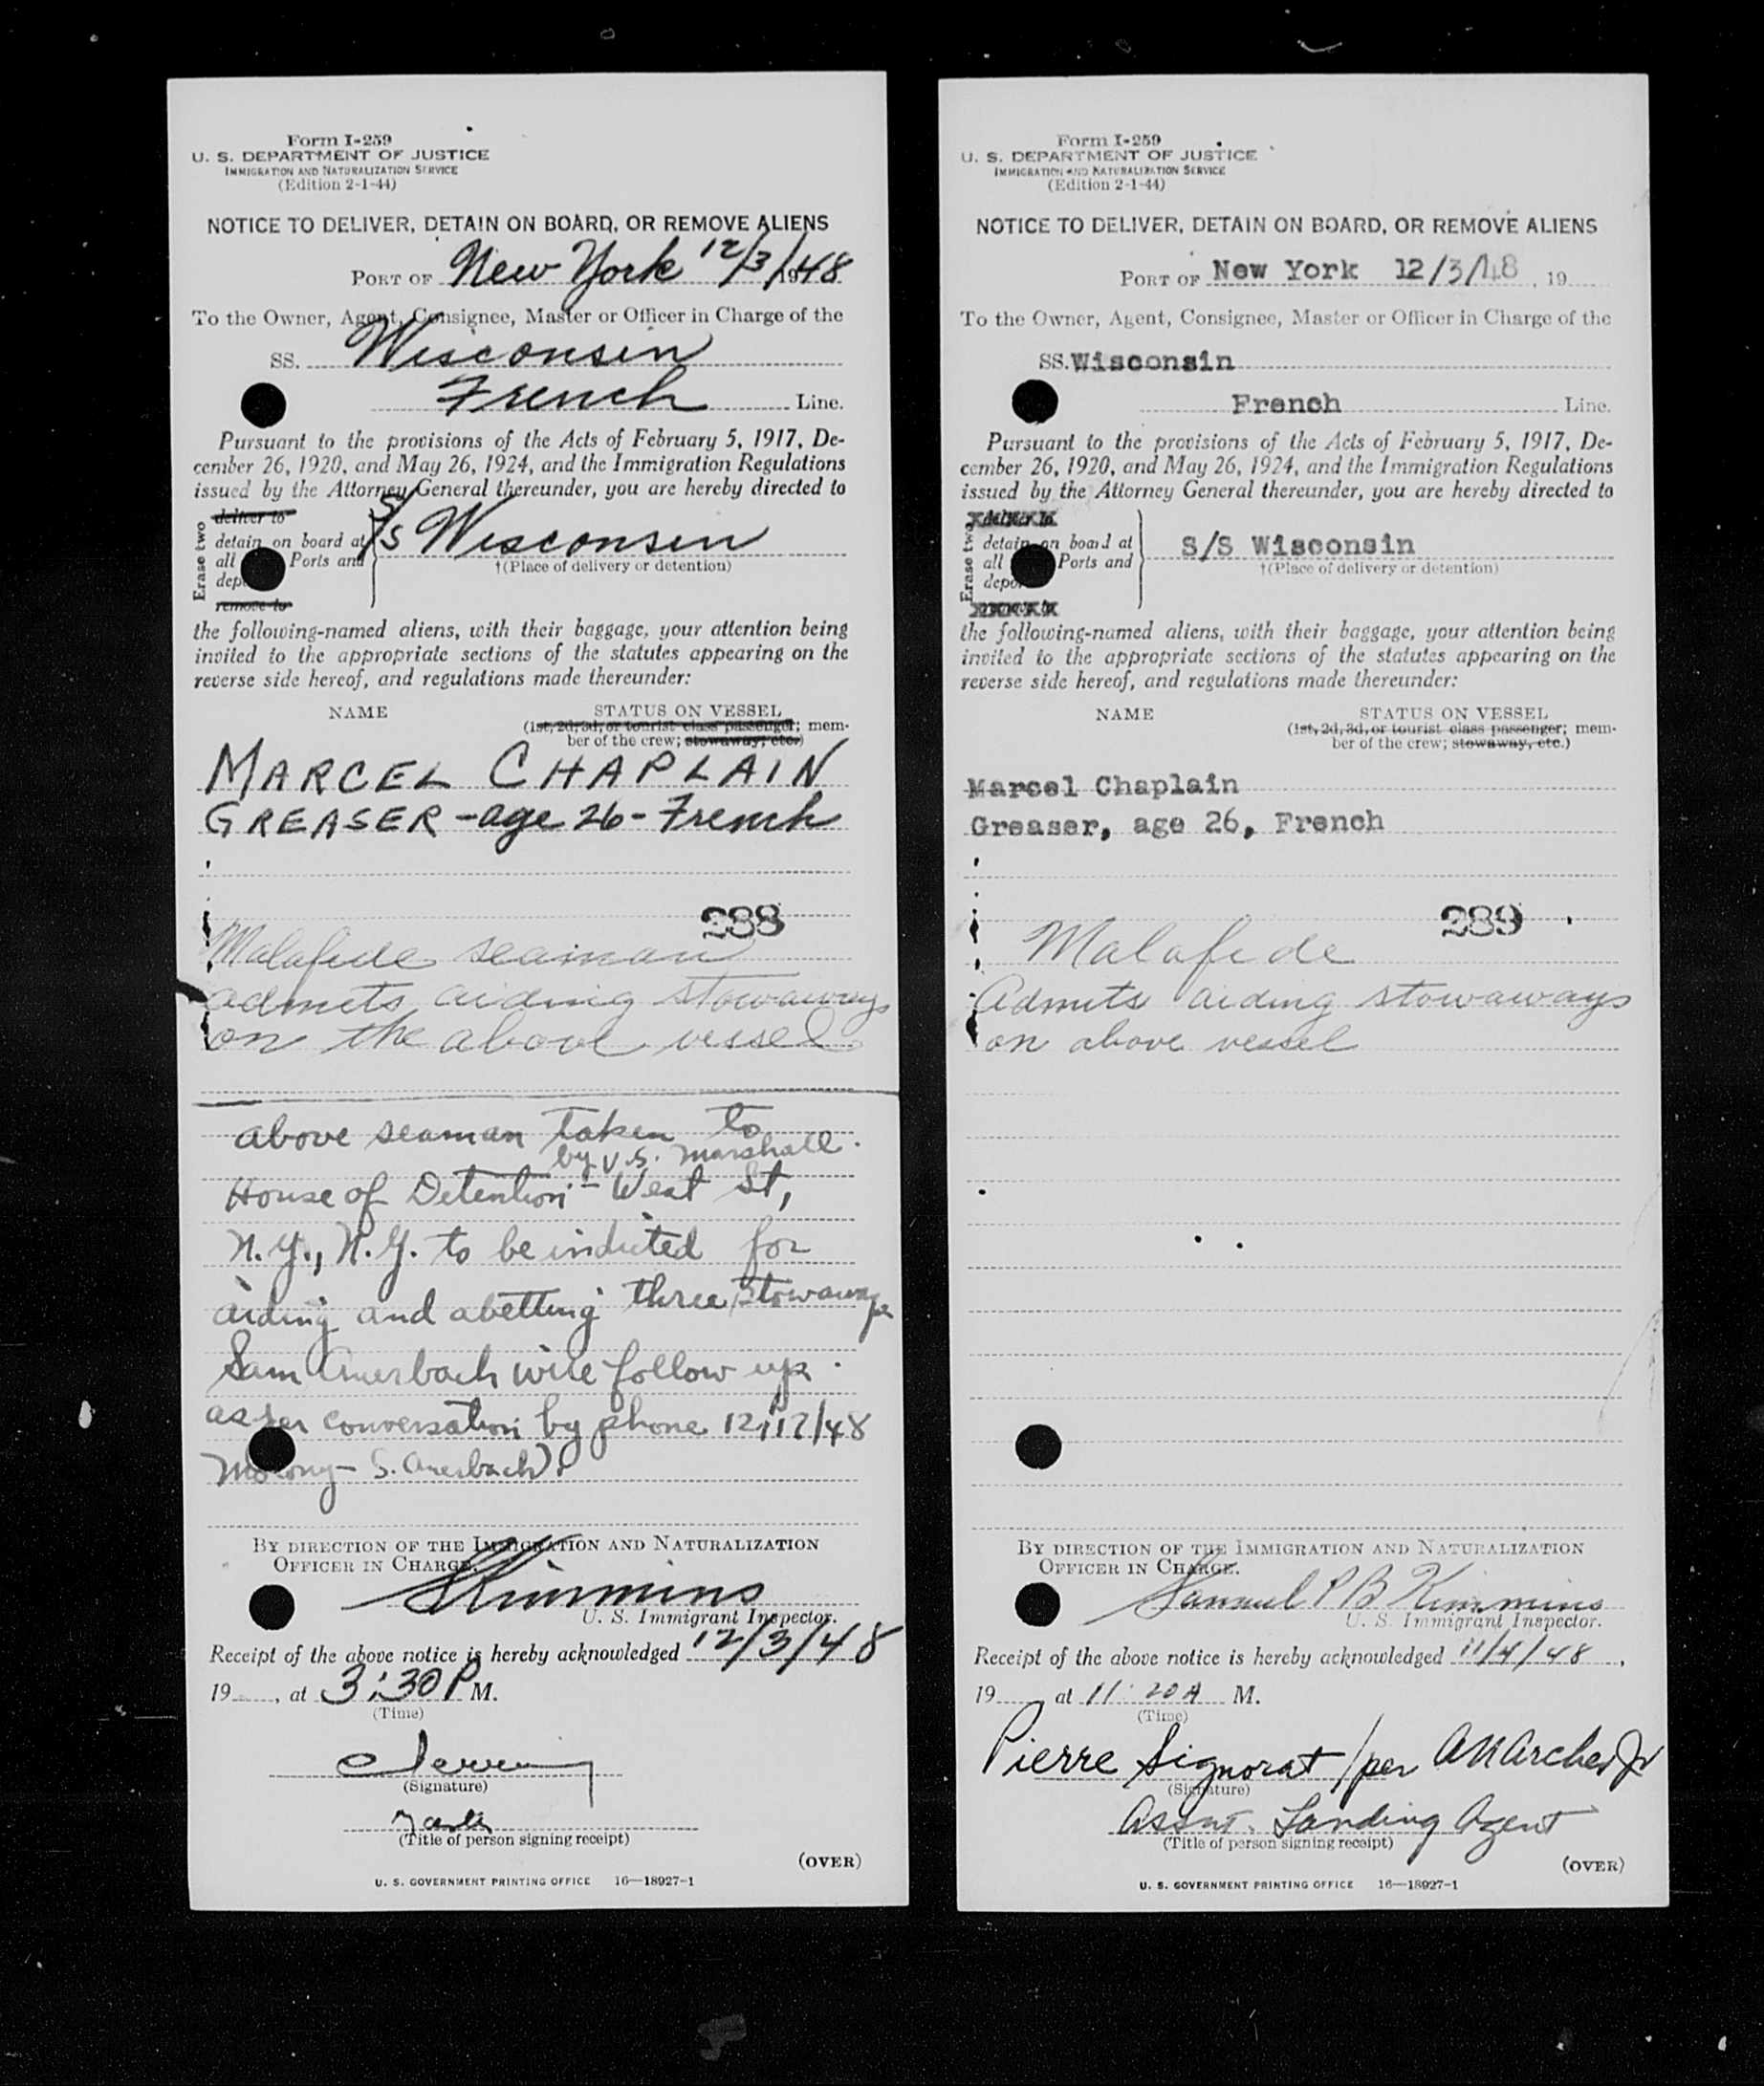 Form I-259
U. S. DEPARTMENT OF JUSTICE
IMMIGRATION AND NATURALIZATION SERVICE
(Edition 2-1-44)
NOTICE TO DELIVER, DETAIN ON BOARD, OR REMOVE ALIENS
PORT OF New York 12/3/1948
To the Owner, Agent, Consignee, Master or Officer in Charge of the
SS. Wisconsin
French Line.
Pursuant to the provisions of the Acts of February 5, 1917, De-
cember 26, 1920, and May 26, 1924, and the Immigration Regulations
issued by the Attorney General thereunder, you are hereby directed to
Erase two
deliver to
detain on board at
all Ports and
remove to
S/S Wisconsin
†(Place of delivery or detention)
the following-named aliens, with their baggage, your attention being
invited to the appropriate sections of the statutes appearing on the
reverse side hereof, and regulations made thereunder:
NAME STATUS ON VESSEL
(1st, 2d, 3d, or tourist class passenger; mem-
ber of the crew; stowaway, etc.)
MARCEL CHAPLAIN
GREASER - age 26 - French
288
Malafide seaman
admets aiding stowaways
on the above vessel
above seaman taken to
by U.S. Marshall.
House of Detention - West St,
N.Y., N.Y. to be indicted for
aiding and abetting three stowaways
Sam Auerbach will follow up.
as per conversation by phone 12/17/48
S. Auerbach).
BY DIRECTION OF THE IMMIGRATION AND NATURALIZATION
OFFICER IN CHARGE.
Kimmins
U. S. Immigrant Inspector.
Receipt of the above notice is hereby acknowledged 12/3/48
19, at 3:30 P M.
(Time)
(Signature)
(Title of person signing receipt)
(OVER)
U. S. GOVERNMENT PRINTING OFFICE 16—18927-1
Form I-259
U. S. DEPARTMENT OF JUSTICE
IMMIGRATION AND NATURALIZATION SERVICE
(Edition 2-1-44)
NOTICE TO DELIVER, DETAIN ON BOARD, OR REMOVE ALIENS
PORT OF New York 12/3/48, 19
To the Owner, Agent, Consignee, Master or Officer in Charge of the
SS. Wisconsin
French Line.
Pursuant to the provisions of the Acts of February 5, 1917, De-
cember 26, 1920, and May 26, 1924, and the Immigration Regulations
issued by the Attorney General thereunder, you are hereby directed to
Erase two
deliver to
detain on board at
all Ports and
S/S Wisconsin
†(Place of delivery or detention)
the following-named aliens, with their baggage, your attention being
invited to the appropriate sections of the statutes appearing on the
reverse side hereof, and regulations made thereunder:
NAME STATUS ON VESSEL
(1st, 2d, 3d, or tourist class passenger; mem-
ber of the crew; stowaway, etc.)
Marcel Chaplain
Greaser, age 26, French
289
Malafide
Admits aiding stowaways
on above vessel
BY DIRECTION OF THE IMMIGRATION AND NATURALIZATION
OFFICER IN CHARGE.
Samuel P B Kimmins
U. S. Immigrant Inspector.
Receipt of the above notice is hereby acknowledged 11/4/48,
19, at 11:20 A M.
(Time)
Pierre Signorat / per A N Archer Jr
(Signature)
Assnt. Landing Agent
(Title of person signing receipt)
(OVER)
U. S. GOVERNMENT PRINTING OFFICE 16—18927-1